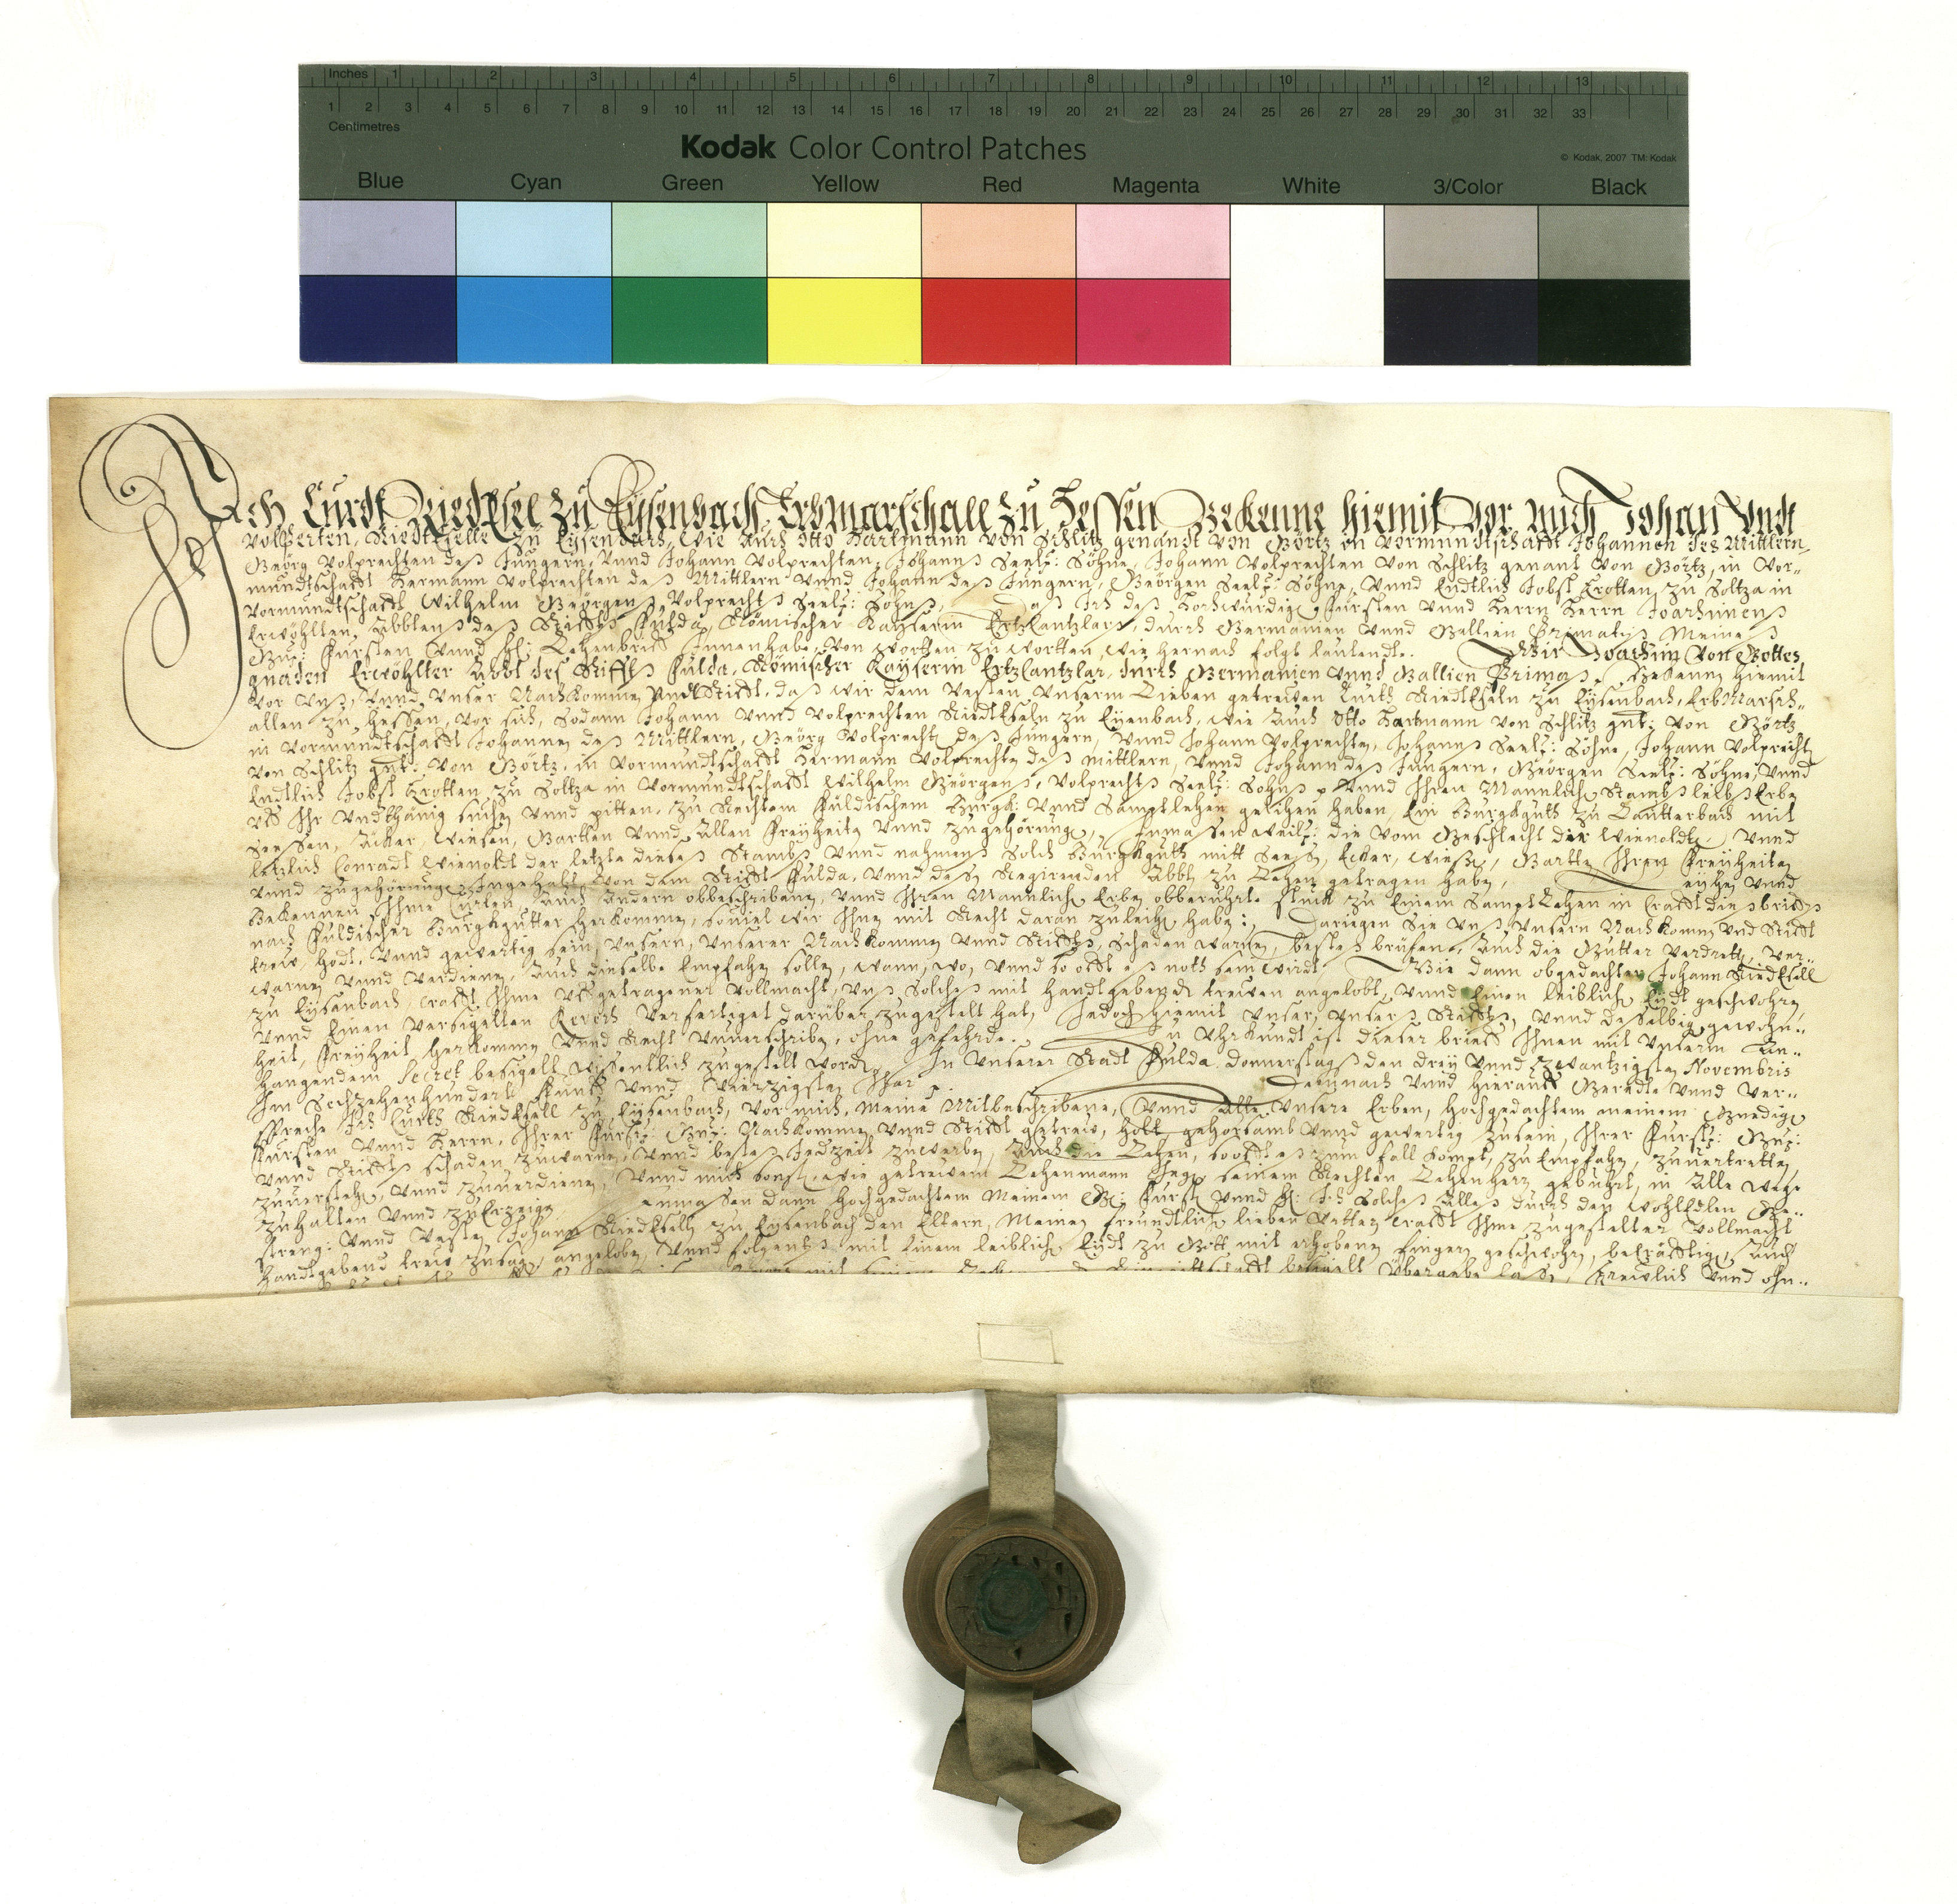 Inches 1 2 3 4 5 6 7 8 9 10 11 12 13
1 2 3 4 5 6 7 8 9 10 11 12 13 14 15 16 17 18 19 20 21 22 23 24 25 26 27 28 29 30 31 32 33
Centimetres
Kodak Color Control Patches
© Kodak, 2007 TM: Kodak
Blue Cyan Green Yellow Red Magenta White 3/Color Black
Ich Curdt Riedtesel zu Eysenbach Erbmarschall zu Hessen Bekenne hiemit vor mich Johan Undt
Volperten, Riedteselle zu Eysenbach, wie auch Otto Hartmann von Schlitz genandt von Görtz in Vormundtschafft Johannen des Mittlern,
Geörg Volprechten deß Jungern, Vnnd Johann Volprechten, Johannß Seel: Söhne, Johann Volprechten von Schlitz genant von Görtz, in Vor-
mundtschafft Hermann Volprechten deß Mittlern Vnnd Johann deß Jungern, Geörgen Seel: Söhne, Vnnd Endtlich Jobst Erotten zu Soltza in
Vormundtschafft Wilhelm Geörgenß Volprechtß Seel: Sohnß, Daß Ich deß Hochwürdig Fürsten Vnnd Herrn Herrn Joachimenß
Erwöhlten Abbtenß deß Stiffts Fulda, Römischer Kayserin Ertzcantzlarß, durch Germanien Vnnd Gallien Primatiß Meineß
Gn: Fursten Vnnd H: Lehenbrieff Innenhabe, von worthen zu worthen, wie hernach folgt lautendt. Wir Joachim Von Gottes
gnaden Erwöhlter Abbt des Stiffts Fulda, Römischer Kayserin Ertzcantzlar, durch Germanien Vnnd Gallien Primaß, Bekenn hiemit
vor Vnß, Vnnd Vnser Nachkommen Vnd Stifft, daß wir dem Vesten Vnserm Lieben getrewen Curth Riedteseln zu Eysenbach, ErbMarsch-
allen zu Hessen, vor sich, Sodann Johann Vnnd Volprechten Riedteseln zu Eysenbach, wie auch Otto Hartmann von Schlitz gnt: von Görtz
in Vormundtschafft Johannen deß Mittlern, Geörg Volprecht deß Jungern, Vnnd Johann Volprechten, Johannß Seel: Söhne, Johann Volprecht
von Schlitz gnt: von Görtz, in Vormundtschafft Hermann Volprechten deß Mittlern, Vnnd Johann deß Jungern, Geörgen Seel: Söhne, Vnnd
Endtlich Jobst Erotten zu Soltza in Vormundtschafft Wilhelm Geörgenß, Volprechtß Seel: Sohnß Vnnd Ihren Mannlich Stambß leibß Erben
Vff Ihr Vndthänig suchen Vnnd pitten, zu Rechtem Fuldischem Burgk: Vnnd Samptlehen gelihen haben, Ein Burgkguth zu Lautterbach mit
Seesen, Äcker, Wiesen, Gartten Vnnd Allen Freyheiten Vnnd zugehörung, Inmassen weil: die vom Geschlecht der Wienoldte, Vnnd
letzlich Conradt Wienoldt der letzte dieses Stambß Vnnd nahmenß Solch Burgkguth mitt Seeß, Ecker, Wiesen, Gartten Ihren Freyheiten
Vnnd zugehörung Ingehabt von dem Stifft Fulda, Vnnd deß Regirenden Abbt zu Lehen getragen haben, Leyhen Vnnd
Bekennen Ihme Curten, auch Andern obbeschribenen, Vnnd Ihren Mannlich Erben obberuhrte stuck zu Einem SamptLehen in Crafft dießbrieffs
nach Fuldischer Burgkgutter Herkommen, souiel wir Ihnen mit Recht daran zuleihen haben; Dariegen Sie Vnß, Vnsern Nachkommen Vnd Stifft
trew, holdt, Vnnd gewertig sein, Vnsern, Vnserer Nachkommen Vnnd Stiffts, Schaden warnen, besteß brüfen, Auch die Gütter Verdretten, Ver-
warnen Vnnd Verdienen, Auch dieselbe Empfahen sollen, wann, wo, Vnnd so offt eß noth sein wirdt. Wie dann obgedachten Johann Riedtesell
zu Eysenbach, crafft Ihme Vffgetragener Vollmacht, Vnß Solcheß mit handtgebendt trewen angelobt, Vnnd Einen leiblich Eydt geschwohren
Vnnd Einen Versigelten Revers Verfertiget darüber zugestelt hat, Jedoch hiemit Vnser, Vnserß Stiffts, Vnnd deßelbig gewohn-
heit, Freyheit, Herkommen Vnnd Recht Vnuerschriben, ohne gefehrde. Zu Vhrkundt ist dieser brieff Ihnen mit Vnserm An-
hangendem Secret besigelt wissentlich zugestelt worden, In Vnserer Stadt Fulda, Donnerstagß den drey Vnnd zwantzigsten Novembris
Im Sechzehenhundert Funff Vnnd Vierzigsten Jhar. Demnach Vnnd hierauff Geredte Vnnd Ver-
spreche Ich Curth Riedtesell zu Eysenbach, Vor mich, meine Mitbeschribene, Vnnd alle Vnsere Erben, hochgedachtem meinem Gnedig
Fursten Vnnd Herrn, Ihrer Furst: Gn: Nachkommen Vnnd Stifft getrew, holt, gehorsamb Vnnd gewertig zu sein, Ihrer Furst: Gn:
Vnnd Stiffts schaden zu warnen, Vnnd besteß Jedzeit zuwerben, Auch die Lehen, so offt eß zum fall kompt, zu Empfahen, zuuertretten,
zuuerstehen, Vnnd zuuerdienen, Vnnd mich sonst, wie getrewem Lehenmann Jegen seinem Rechten Lehenherz gebührt, in Alle wege
zuhalten Vnnd zu Erzeigen. Inmassen dann hochgedachtem Meinem G: Furst Vnnd H: Ich Solches Alleß durch den WohlEdlen Ge-
streng: Vnnd Vesten Johann Riedteselln zu Eysenbach den Eltern, Meinen Freundtlich lieben Vettern, crafft Ihme zugestelter Vollmacht
handtgebend trew zusagen, angeloben, Vnnd folgentß mit Einem leiblich Eydt zu Gott mit erhobenen fingern geschwohren, bekräfftig, Auch
mit seinem besigelt Übergeben laßen, trewlich Vnnd ohn-